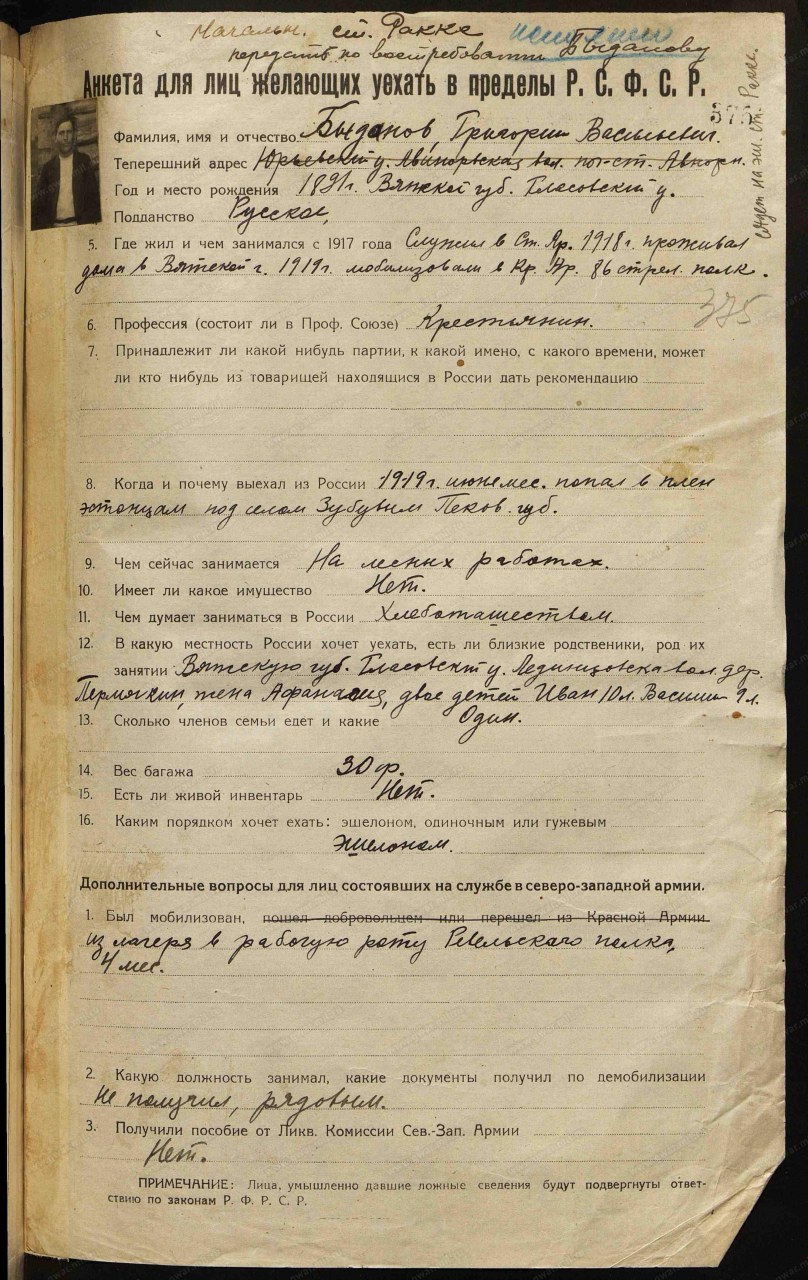 Начальн. ст. Ракке
передать по востребованию Быданову
Анкета для лиц желающих уехать в пределы Р. С. Ф. С. Р.
375
Фамилия, имя и отчество Быданов, Григорий Васильевич.
Теперешний адрес Юрьевский у. Авинормская вол. пот-ст. Авнорм.
Год и место рождения 1891г. Вятской губ. Гласовский у.
Подданство Русское,
5. Где жил и чем занимался с 1917 года Служил в Ст. Ар. 1918 г. проживал
дома в Вятской г. 1919г. мобилизовали в Кр. Ар. 86 стрел. полк.
375
6. Профессия (состоит ли в Проф. Союзе) Крестьянин.
7. Принадлежит ли какой нибудь партии, к какой имено, с какого времени, может
ли кто нибудь из товарищей находящися в России дать рекомендацию
8. Когда и почему выехал из России 1919г. июне мес. попал в плен
эстонцам под селом Псков. губ.
9. Чем сейчас занимается На лесных работах.
10. Имеет ли какое имущество Нет.
11. Чем думает заниматься в России Хлебопашеством.
12. В какую местность России хочет уехать, есть ли близкие родственики, род их
занятии Вятскую губ. Гласовский у. вол. дер.
жена двое детей Иван 10л. Василий 9 л.
13. Сколько членов семьи едет и какие Один.
14. Вес багажа 30 ф.
15. Есть ли живой инвентарь Нет.
16. Каким порядком хочет ехать: эшелоном, одиночным или гужевым
Эшелоном.
Дополнительные вопросы для лиц состоявших на службе в северо-западной армии.
1. Был мобилизован, пошел добровольцем или перешел из Красной Армии
из лагеря в рабочую роту Ревельского полка,
4 мес.
2. Какую должность занимал, какие документы получил по демобилизации
Не получил, рядовым.
3. Получили пособие от Ликв. Комиссии Сев.-Зап. Армии
Нет.
ПРИМЕЧАНИЕ: Лица, умышленно давшие ложные сведения будут подвергнуты ответ-
ствию по законам Р. Ф. Р. С. Р.